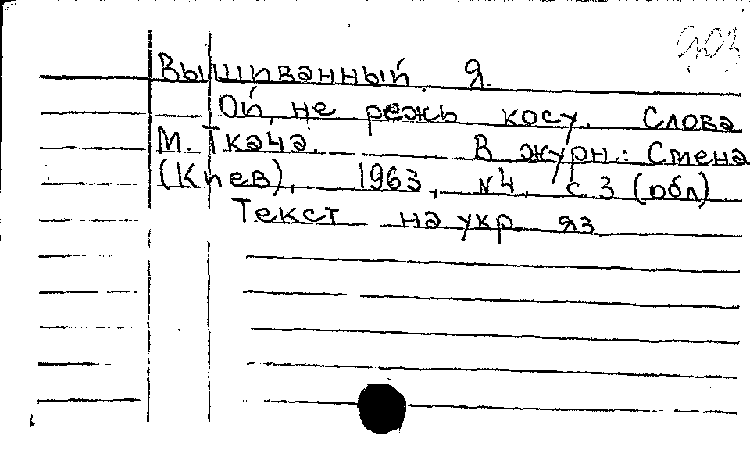 903
Вышиванный. Я.
Ой, не режь косу. Слова
М. Ткача. В журн.: Смена
(Киев), 1963, №4, с 3 (обл)
Текст на укр яз